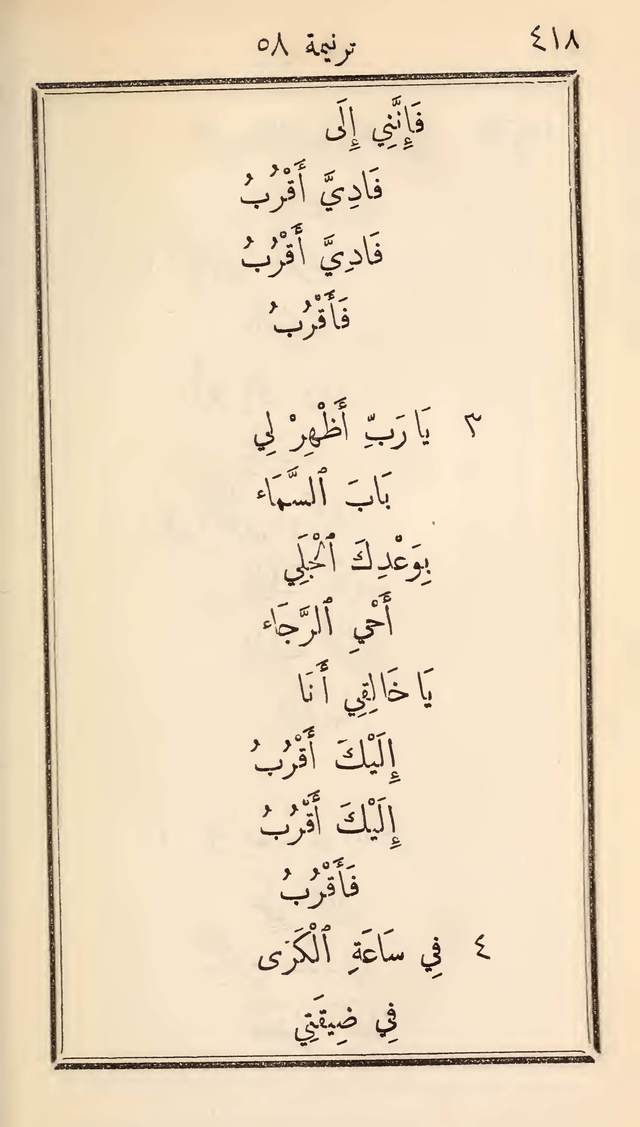 ٤١٨ ترنيمة ٥٨
فَإِنَّنِي إِلَى
فَادِيَّ أَقْرُبُ
فَادِيَّ أَقْرُبُ
فَأَقْرُبُ
٣ يَا رَبِّ أَظْهِرْ لِي
بَابَ ٱلسَّمَاء
بِوَعْدِكَ ٱلْجَلِي
أَحْيِ ٱلرَّجَاء
يَا خَالِقِي أَنَا
إِلَيْكَ أَقْرُبُ
إِلَيْكَ أَقْرُبُ
فَأَقْرُبُ
٤ فِي سَاعَةِ ٱلْكَرَى
فِي ضِيقَتِي